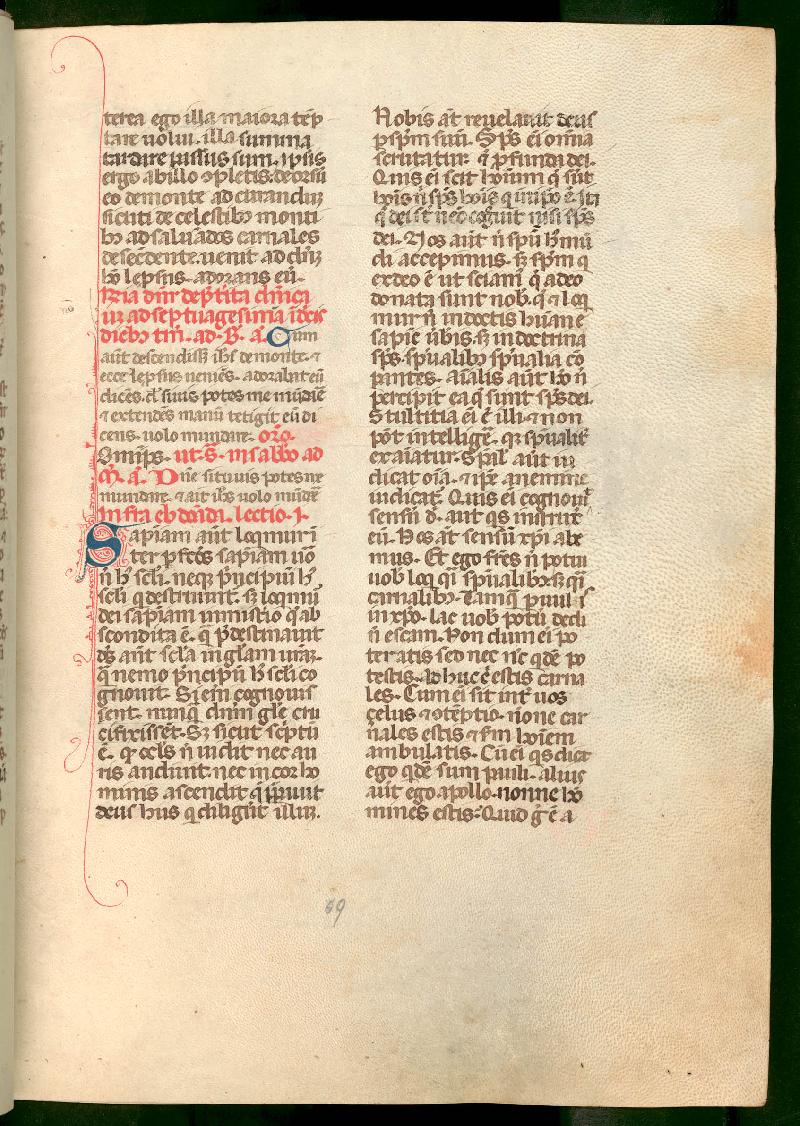 terea ego illa maiora tẽp
tare nolui. illa summa
tardire iussus sum. ipsis
ergo ab illo ↄpletis. deorsũ
eo de monte ad curandũ
sicuti de celestibꝫ monti
bꝫ ad saluãdos carnales
descẽdente. uenit ad eũ
lepsus. adorans eũ.
ad septuagesima
diebꝫ tm̃. ad. B. a. Cum
aũt descendiss; ihs̃ de monte. ⁊
ecce lepsus ueniẽs. adorabat eũ
dicẽs. dñe si uis potes me mũdãre
⁊ extendẽs manũ tetigit eũ di
cens. uolo mundare. oro.
Omips. ut. S. in sabbo ad
M. a. Dñe si tu uis potes me
mundare. ⁊ ait ihs̃ uolo mũdare
Infra ebdomdã. lectio. I.
Sapiam aũt loqmur ĩ
ter pfcõs sapiam uõ
ñ hꝰ scłi. neqꝫ pⁱncipũ hꝰ
scłi q destruunt. sꝫ loqm̃
dei sapiam misterio q̃ ab
scondita ẽ. q̃ pdestinauit
ds̃ ant̃ scła in głam nr̃am.
q̃ nemo pⁱncipũ hꝰ scłi co
gnouit. Si em̃ cognouis
sent. nunq̃ dnm̃ głe cru
cifixissẽt. Sꝫ sicut sc̃ptũ
ẽ. qꝫ ocłs ñ uidit nec au
ris audiuit. nec in cor ho
minis ascendit q̃ pparauit
deus hiis q diligũt illum.
Nobis aũt reuelauit deus
p spm̃ suũ. Sps̃ ei õmia
scrutatur. ⁊ pfunda dei.
Quis ei scit hoĩum q̃ sũt
hoĩs ñ sps̃ hoĩs q in ipo ẽ. Ita
q̃ dei st̃ nẽo cognuit nisi sps̃
dei. Nos aũt ñ spm̃ hꝰ mũ
di accepimus. sꝫ spm̃ q
ex deo ẽ ut sciam̃ q̃ a deo
donata sunt nob. q̃ ⁊ loq
mur ñ in doctis humane
sapie ũbis. sꝫ in doctrina
sps̃. spualibꝫ spualia cõ
pantes. aĩalis aũt hõ ñ
percipit ea q̃ sunt sps̃ dei.
Stultitia ei ẽ illi. ⁊ non
põt intelligẽ. qꝫ spualit̃
exaĩatur. Spal̃ aũt iu
dicat oĩa. ⁊ ipe a nemine
iudicat̃. Quis ei cognouit
sensũ d. aut qs instruit
eũ. Nos aũt sensũ xp̃i abe
mus. Et ego frẽs ñ potui
uob loq qi spũalibꝫ. sꝫ qi
carnalibꝫ. Tamq̃ puulis
in xp̃o. lac uob potũ dedi
ñ escam. Non dum ei po
teratis sed nec nc̃ qdẽ po
testis. ad huc ẽ estis carna
les. Cum ei sit int̃ uos
çelus ⁊ ↄtẽptio. nõne car
nales estis ⁊ fm hoĩem
ambulatis. Cũ ei qs dicat
ego qdẽ sum pauli. alius
aũt ego apollo. nonne ho
mines estis. Quid g̃ ẽ a
59